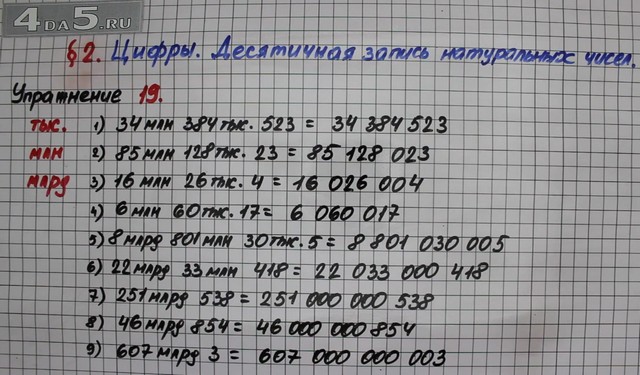 4DA5.RU
§2. Цифры. Десятичная запись натуральных чисел.
Упражнение 19.
тыс. 1) 34 млн 384 тыс. 523 = 34 384 523
млн 2) 85 млн 128 тыс. 23 = 85 128 023
млрд 3) 16 млн 26 тыс. 4 = 16 026 004
4) 6 млн 60 тыс. 17 = 6 060 017
5) 8 млрд 801 млн 30 тыс. 5 = 8 801 030 005
6) 22 млрд 33 млн 418 = 22 033 000 418
7) 251 млрд 538 = 251 000 000 538
8) 46 млрд 854 = 46 000 000 854
9) 607 млрд 3 = 607 000 000 003